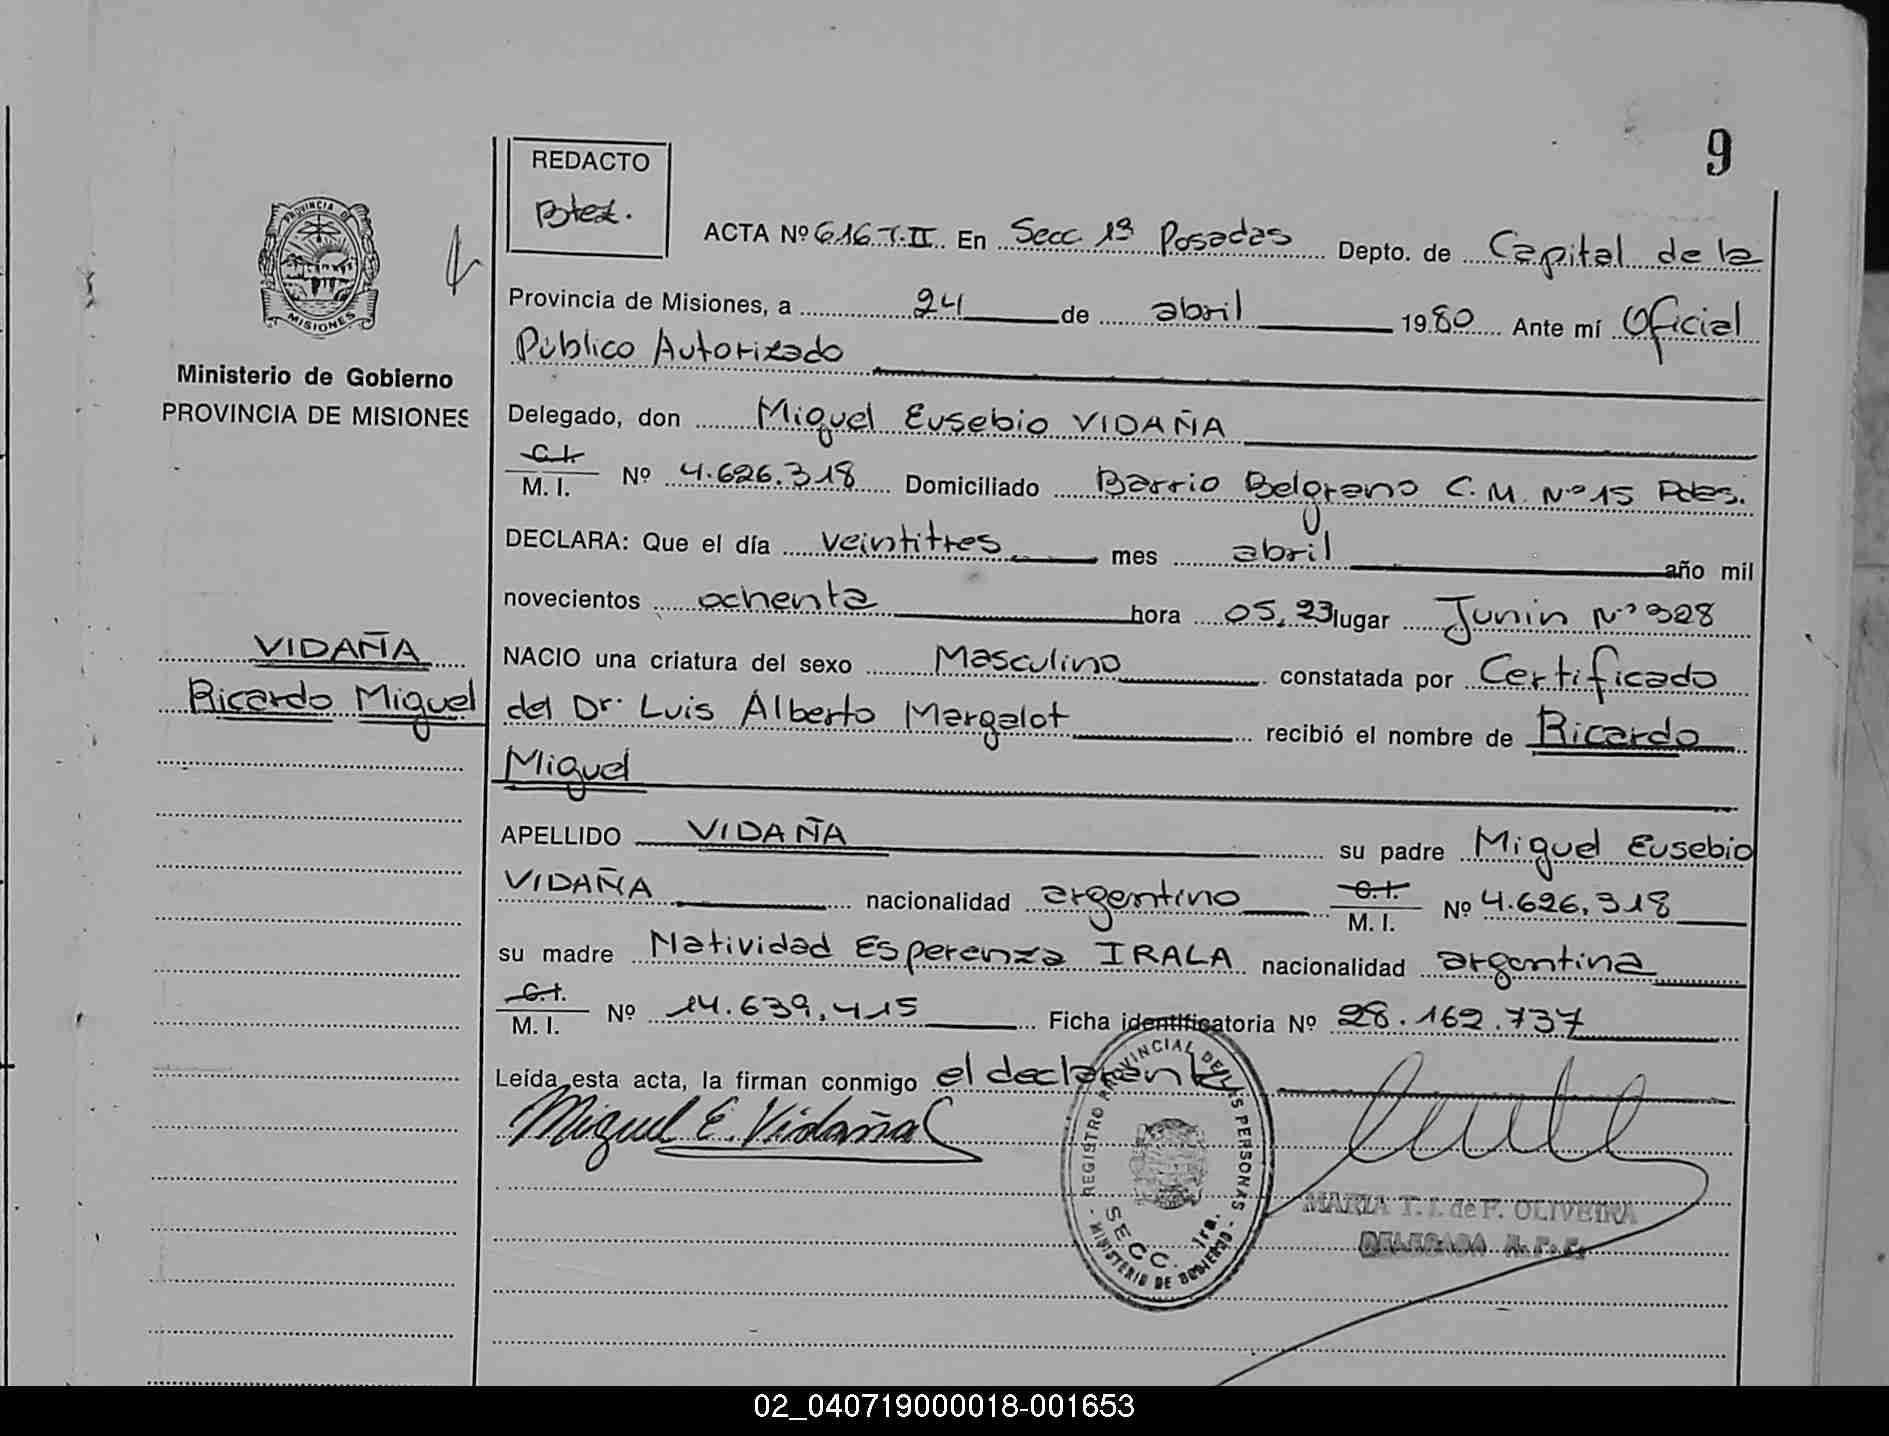 9
REDACTO
Btez.
PROVINCIA DE
MISIONES
Ministerio de Gobierno
PROVINCIA DE MISIONES
VIDAÑA
Ricardo Miguel
ACTA Nº 616 T. II En Secc 1ª Posadas Depto. de Capital de la
Provincia de Misiones, a 24 de abril 1980 Ante mí Oficial
Público Autorizado
Delegado, don Miguel Eusebio VIDAÑA
C.I.
M. I. Nº 4.626.318 Domiciliado Barrio Belgrano C.M. Nº 15 Pdas.
DECLARA: Que el día veintitres mes abril año mil
novecientos ochenta hora 05,23 lugar Junin Nº 328
NACIO una criatura del sexo Masculino constatada por Certificado
del Dr. Luis Alberto Margalot recibió el nombre de Ricardo
Miguel
APELLIDO VIDAÑA su padre Miguel Eusebio
VIDAÑA nacionalidad argentino C.I. M. I. Nº 4.626.318
su madre Natividad Esperanza IRALA nacionalidad argentina
C.I.
M. I. Nº 14.639.415 Ficha identificatoria Nº 28.162.737
Leída esta acta, la firman conmigo el declarante
Miguel E. Vidaña
REGISTRO PROVINCIAL DE LAS PERSONAS
SECC. 1ra.
- MINISTERIO DE GOBIERNO -
MARIA T. I. de F. OLIVEIRA
DELEGADA
02_040719000018-001653